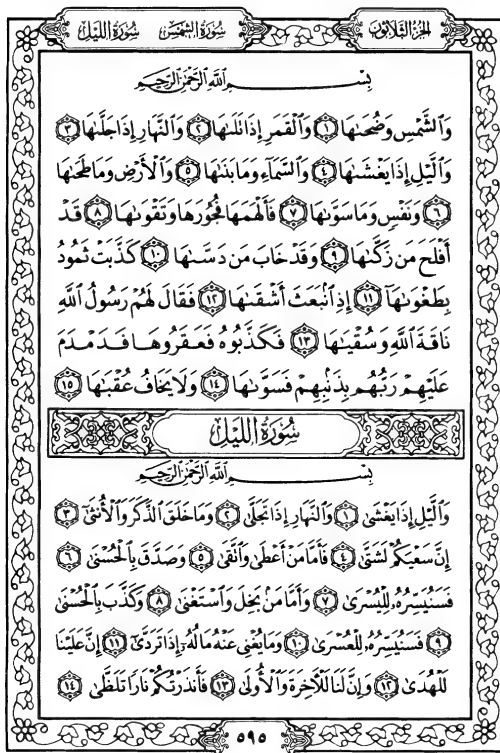 الجزء الثلاثون سورة الشمس سورة الليل
بِسْمِ اللَّهِ الرَّحْمَٰنِ الرَّحِيمِ
وَالشَّمْسِ وَضُحَىٰهَا ١ وَالْقَمَرِ إِذَا تَلَىٰهَا ٢ وَالنَّهَارِ إِذَا جَلَّىٰهَا ٣
وَالَّيْلِ إِذَا يَغْشَىٰهَا ٤ وَالسَّمَآءِ وَمَا بَنَىٰهَا ٥ وَالْأَرْضِ وَمَا طَحَىٰهَا
٦ وَنَفْسٍ وَمَا سَوَّىٰهَا ٧ فَأَلْهَمَهَا فُجُورَهَا وَتَقْوَىٰهَا ٨ قَدْ
أَفْلَحَ مَن زَكَّىٰهَا ٩ وَقَدْ خَابَ مَن دَسَّىٰهَا ١٠ كَذَّبَتْ ثَمُودُ
بِطَغْوَىٰهَآ ١١ إِذِ انۢبَعَثَ أَشْقَىٰهَا ١٢ فَقَالَ لَهُمْ رَسُولُ اللَّهِ
نَاقَةَ اللَّهِ وَسُقْيَىٰهَا ١٣ فَكَذَّبُوهُ فَعَقَرُوهَا فَدَمْدَمَ
عَلَيْهِمْ رَبُّهُم بِذَنۢبِهِمْ فَسَوَّىٰهَا ١٤ وَلَا يَخَافُ عُقْبَىٰهَا ١٥
سورة الليل
بِسْمِ اللَّهِ الرَّحْمَٰنِ الرَّحِيمِ
وَالَّيْلِ إِذَا يَغْشَىٰ ١ وَالنَّهَارِ إِذَا تَجَلَّىٰ ٢ وَمَا خَلَقَ الذَّكَرَ وَالْأُنثَىٰٓ ٣
إِنَّ سَعْيَكُمْ لَشَتَّىٰ ٤ فَأَمَّا مَنْ أَعْطَىٰ وَاتَّقَىٰ ٥ وَصَدَّقَ بِالْحُسْنَىٰ ٦
فَسَنُيَسِّرُهُۥ لِلْيُسْرَىٰ ٧ وَأَمَّا مَنۢ بَخِلَ وَاسْتَغْنَىٰ ٨ وَكَذَّبَ بِالْحُسْنَىٰ
٩ فَسَنُيَسِّرُهُۥ لِلْعُسْرَىٰ ١٠ وَمَا يُغْنِي عَنْهُ مَالُهُۥٓ إِذَا تَرَدَّىٰٓ ١١ إِنَّ عَلَيْنَا
لَلْهُدَىٰ ١٢ وَإِنَّ لَنَا لَلْءَاخِرَةَ وَالْأُولَىٰ ١٣ فَأَنذَرْتُكُمْ نَارًا تَلَظَّىٰ ١٤
٥٩٥